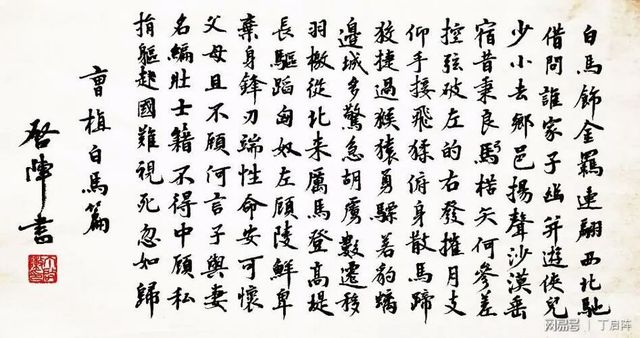 白馬飾金羈連翩西北馳
借問誰家子幽并遊俠兒
少小去鄉邑揚聲沙漠垂
宿昔秉良馬弓楛矢何參差
控弦破左的右發摧月支
仰手接飛猱俯身散馬蹄
狡捷過猴猿勇剽若豹螭
邊城多驚急胡虜數遷移
羽檄從北来厲馬登高堤
長驅蹈匈奴左顧陵鮮卑
棄身鋒刃端性命安可懷
父母且不顧何言子與妻
名編壯士籍不得中顧私
捐軀赴國難視死忽如歸
曹植白馬篇
啓陣書
网易号 | 丁启阵